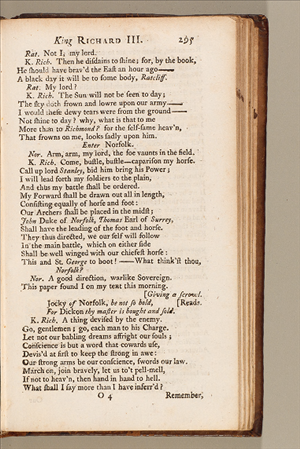 King RICHARD III. 295
Rat. Not I, my lord.
K. Rich. Then he diſdains to ſhine; for, by the book,
He ſhould have brav'd the Eaſt an hour ago——
A black day it will be to ſome body, Ratcliff.
Rat. My lord?
K. Rich. The Sun will not be ſeen to day;
The ſky doth frown and lowre upon our army——
I would theſe dewy tears were from the ground——
Not ſhine to day? why, what is that to me
More than to Richmond? for the ſelf-ſame heav'n,
That frowns on me, looks ſadly upon him.
Enter Norfolk.
Nor. Arm, arm, my lord, the foe vaunts in the field.
K. Rich. Come, buſtle, buſtle—capariſon my horſe.
Call up lord Stanley, bid him bring his Power;
I will lead forth my ſoldiers to the plain,
And thus my battle ſhall be ordered.
My Forward ſhall be drawn out all in length,
Conſiſting equally of horſe and foot:
Our Archers ſhall be placed in the midſt;
John Duke of Norfolk, Thomas Earl of Surrey,
Shall have the leading of the foot and horſe.
They thus directed, we our ſelf will follow
In the main battle, which on either ſide
Shall be well winged with our chiefeſt horſe:
This and St. George to boot!——What think'ſt thou,
Norfolk?
Nor. A good direction, warlike Sovereign.
This paper found I on my tent this morning.
[Giving a ſcrowl.
Jocky of Norfolk, be not ſo bold, [Reads.
For Dickon thy maſter is bought and ſold.
K. Rich. A thing deviſed by the enemy.
Go, gentlemen; go, each man to his Charge.
Let not our babling dreams affright our ſouls;
Conſcience is but a word that cowards uſe,
Devis'd at firſt to keep the ſtrong in awe:
Our ſtrong arms be our conſcience, ſwords our law.
March on, join bravely, let us to't pell-mell,
If not to heav'n, then hand in hand to hell.
What ſhall I ſay more than I have inferr'd?
O 4 Remember,